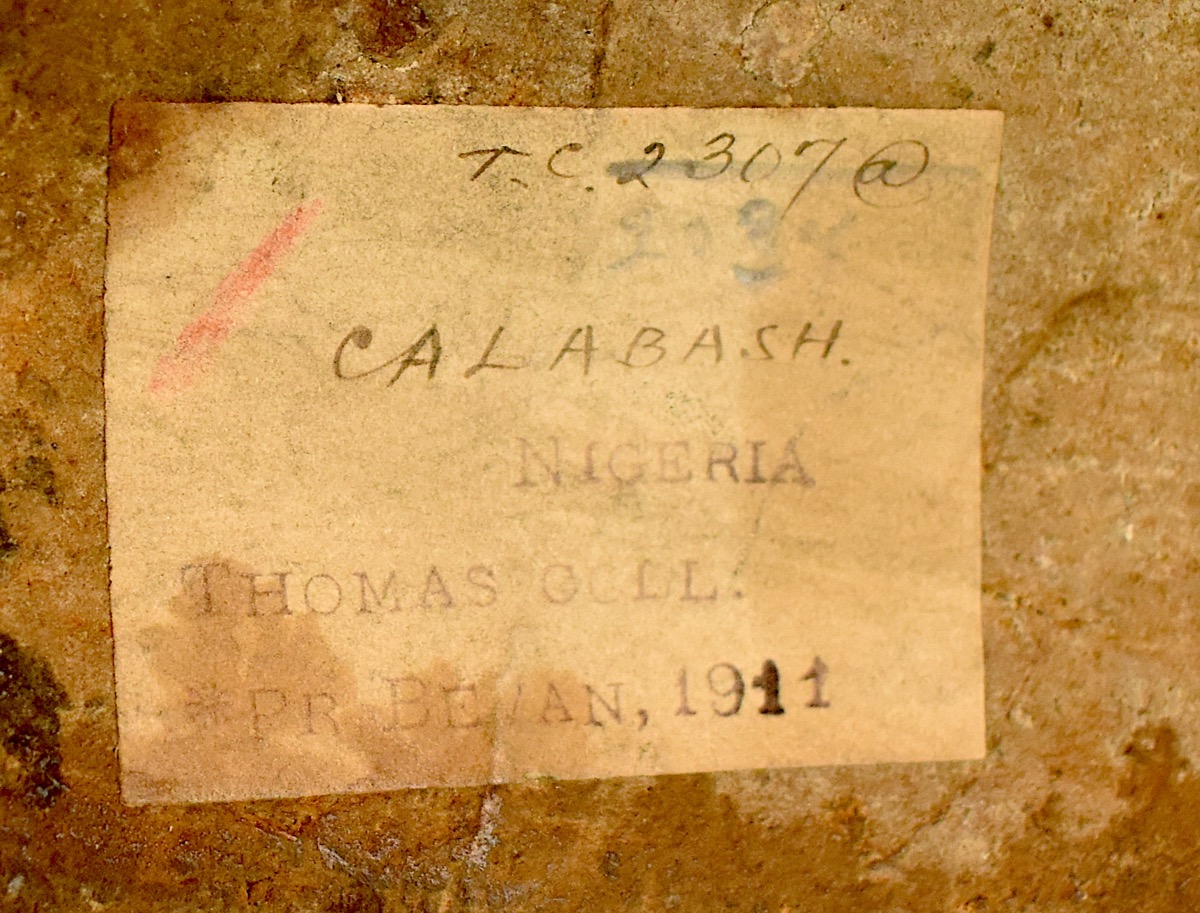 T.C. 2307 @
CALABASH.
NIGERIA
THOMAS COLL.
*PR BEVAN, 1911